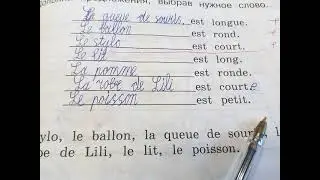 предложения, выбрав нужное слово.
La queue de souris est longue.
Le ballon est rond.
Le stylo est court.
Le lit est long.
La pomme est ronde.
La robe de Lili est courte
Le poisson est petit.
ylo, le ballon, la queue de sour
be de Lili, le lit, le poisson.